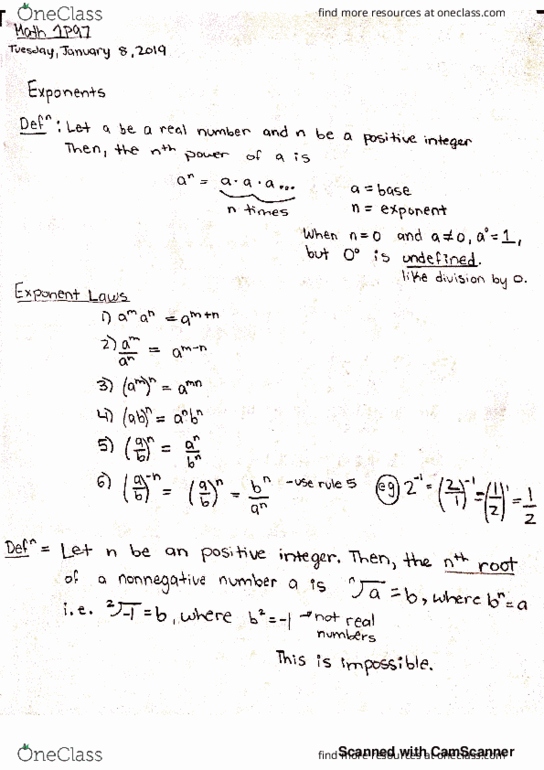 OneClass
find more resources at oneclass.com
Math 1P97
Tuesday, January 8, 2019
Exponents
Defⁿ: Let a be a real number and n be a positive integer
Then, the nᵗʰ power of a is
aⁿ = a·a·a...
n times
a = base
n = exponent
When n=0 and a≠0, a⁰=1,
but 0⁰ is undefined.
like division by 0.
Exponent Laws
1) aᵐaⁿ = aᵐ⁺ⁿ
2) aᵐ/aⁿ = aᵐ⁻ⁿ
3) (aᵐ)ⁿ = aᵐⁿ
4) (ab)ⁿ = aⁿbⁿ
5) (a/b)ⁿ = aⁿ/bⁿ
6) (a/b)⁻ⁿ = (a/b)ⁿ = bⁿ/aⁿ -use rule 5 eg 2⁻¹ = (2/1)⁻¹ = (1/2)¹ = 1/2
Defⁿ = Let n be an positive integer. Then, the nᵗʰ root
of a nonnegative number a is ⁿ√a = b, where bⁿ=a
i.e. ²√-1 = b, where b²=-1 → not real
numbers
This is impossible.
OneClass
find more resources at oneclass.com
Scanned with CamScanner